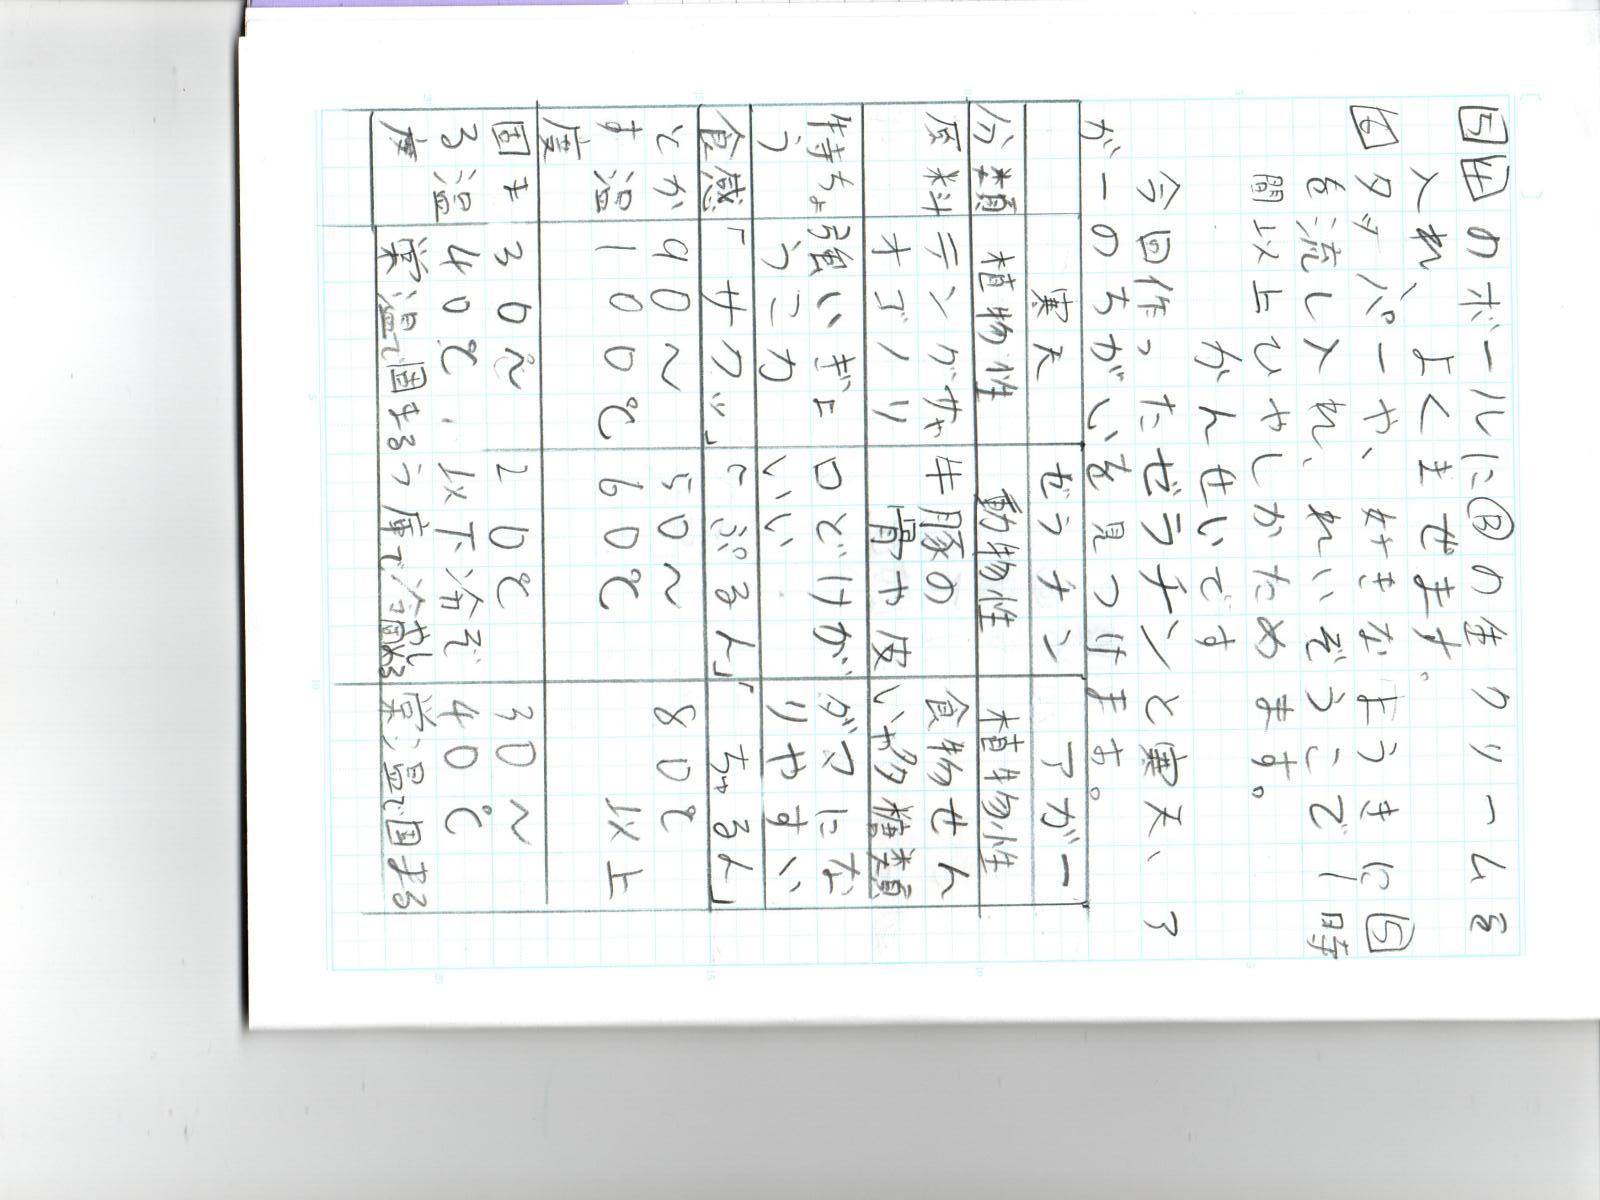 5 4のボールにⒷの生クリームを
入れ、よくまぜます。
6 タッパーや、好きなようきに5
を流し入れ、れいぞうこで1時
間以上ひやしかためます。
かんせいです
今回作ったゼラチンと寒天、ア
ガーのちがいを見つけます。
寒天 ぜラチン アガー
分類 植物性 動物性 植物性
原料 テングサや オゴノリ 牛豚の骨や皮 食物せんい多糖類
特ちょう 強いぎょうこ力 口どけがいい ダマになりやすい
食感 「サクッ」 「ぷるん」 「ちゅるん」
とかす温度 90〜100℃ 50〜60℃ 80℃以上
固まる温度 30〜40℃、常温で固まる 20℃以下冷ぞう庫で冷やし固める 30〜40℃常温で固まる